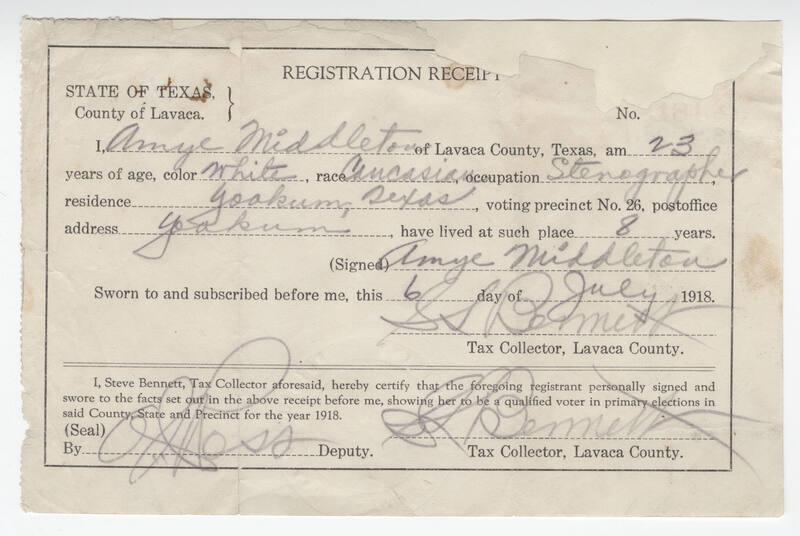 REGISTRATION RECEIPT
STATE OF TEXAS, }
County of Lavaca. No.
I, Amye Middleton of Lavaca County, Texas, am 23
years of age, color White, race Caucasian, occupation Stenographer,
residence Yoakum, Texas, voting precinct No. 26, postoffice
address Yoakum, have lived at such place 8 years.
(Signed) Amye Middleton
Sworn to and subscribed before me, this 6 day of July 1918.
S L Bennett
Tax Collector, Lavaca County.
I, Steve Bennett, Tax Collector aforesaid, hereby certify that the foregoing registrant personally signed and
swore to the facts set out in the above receipt before me, showing her to be a qualified voter in primary elections in
said County, State and Precinct for the year 1918.
(Seal) S L Bennett
By Deputy. Tax Collector, Lavaca County.